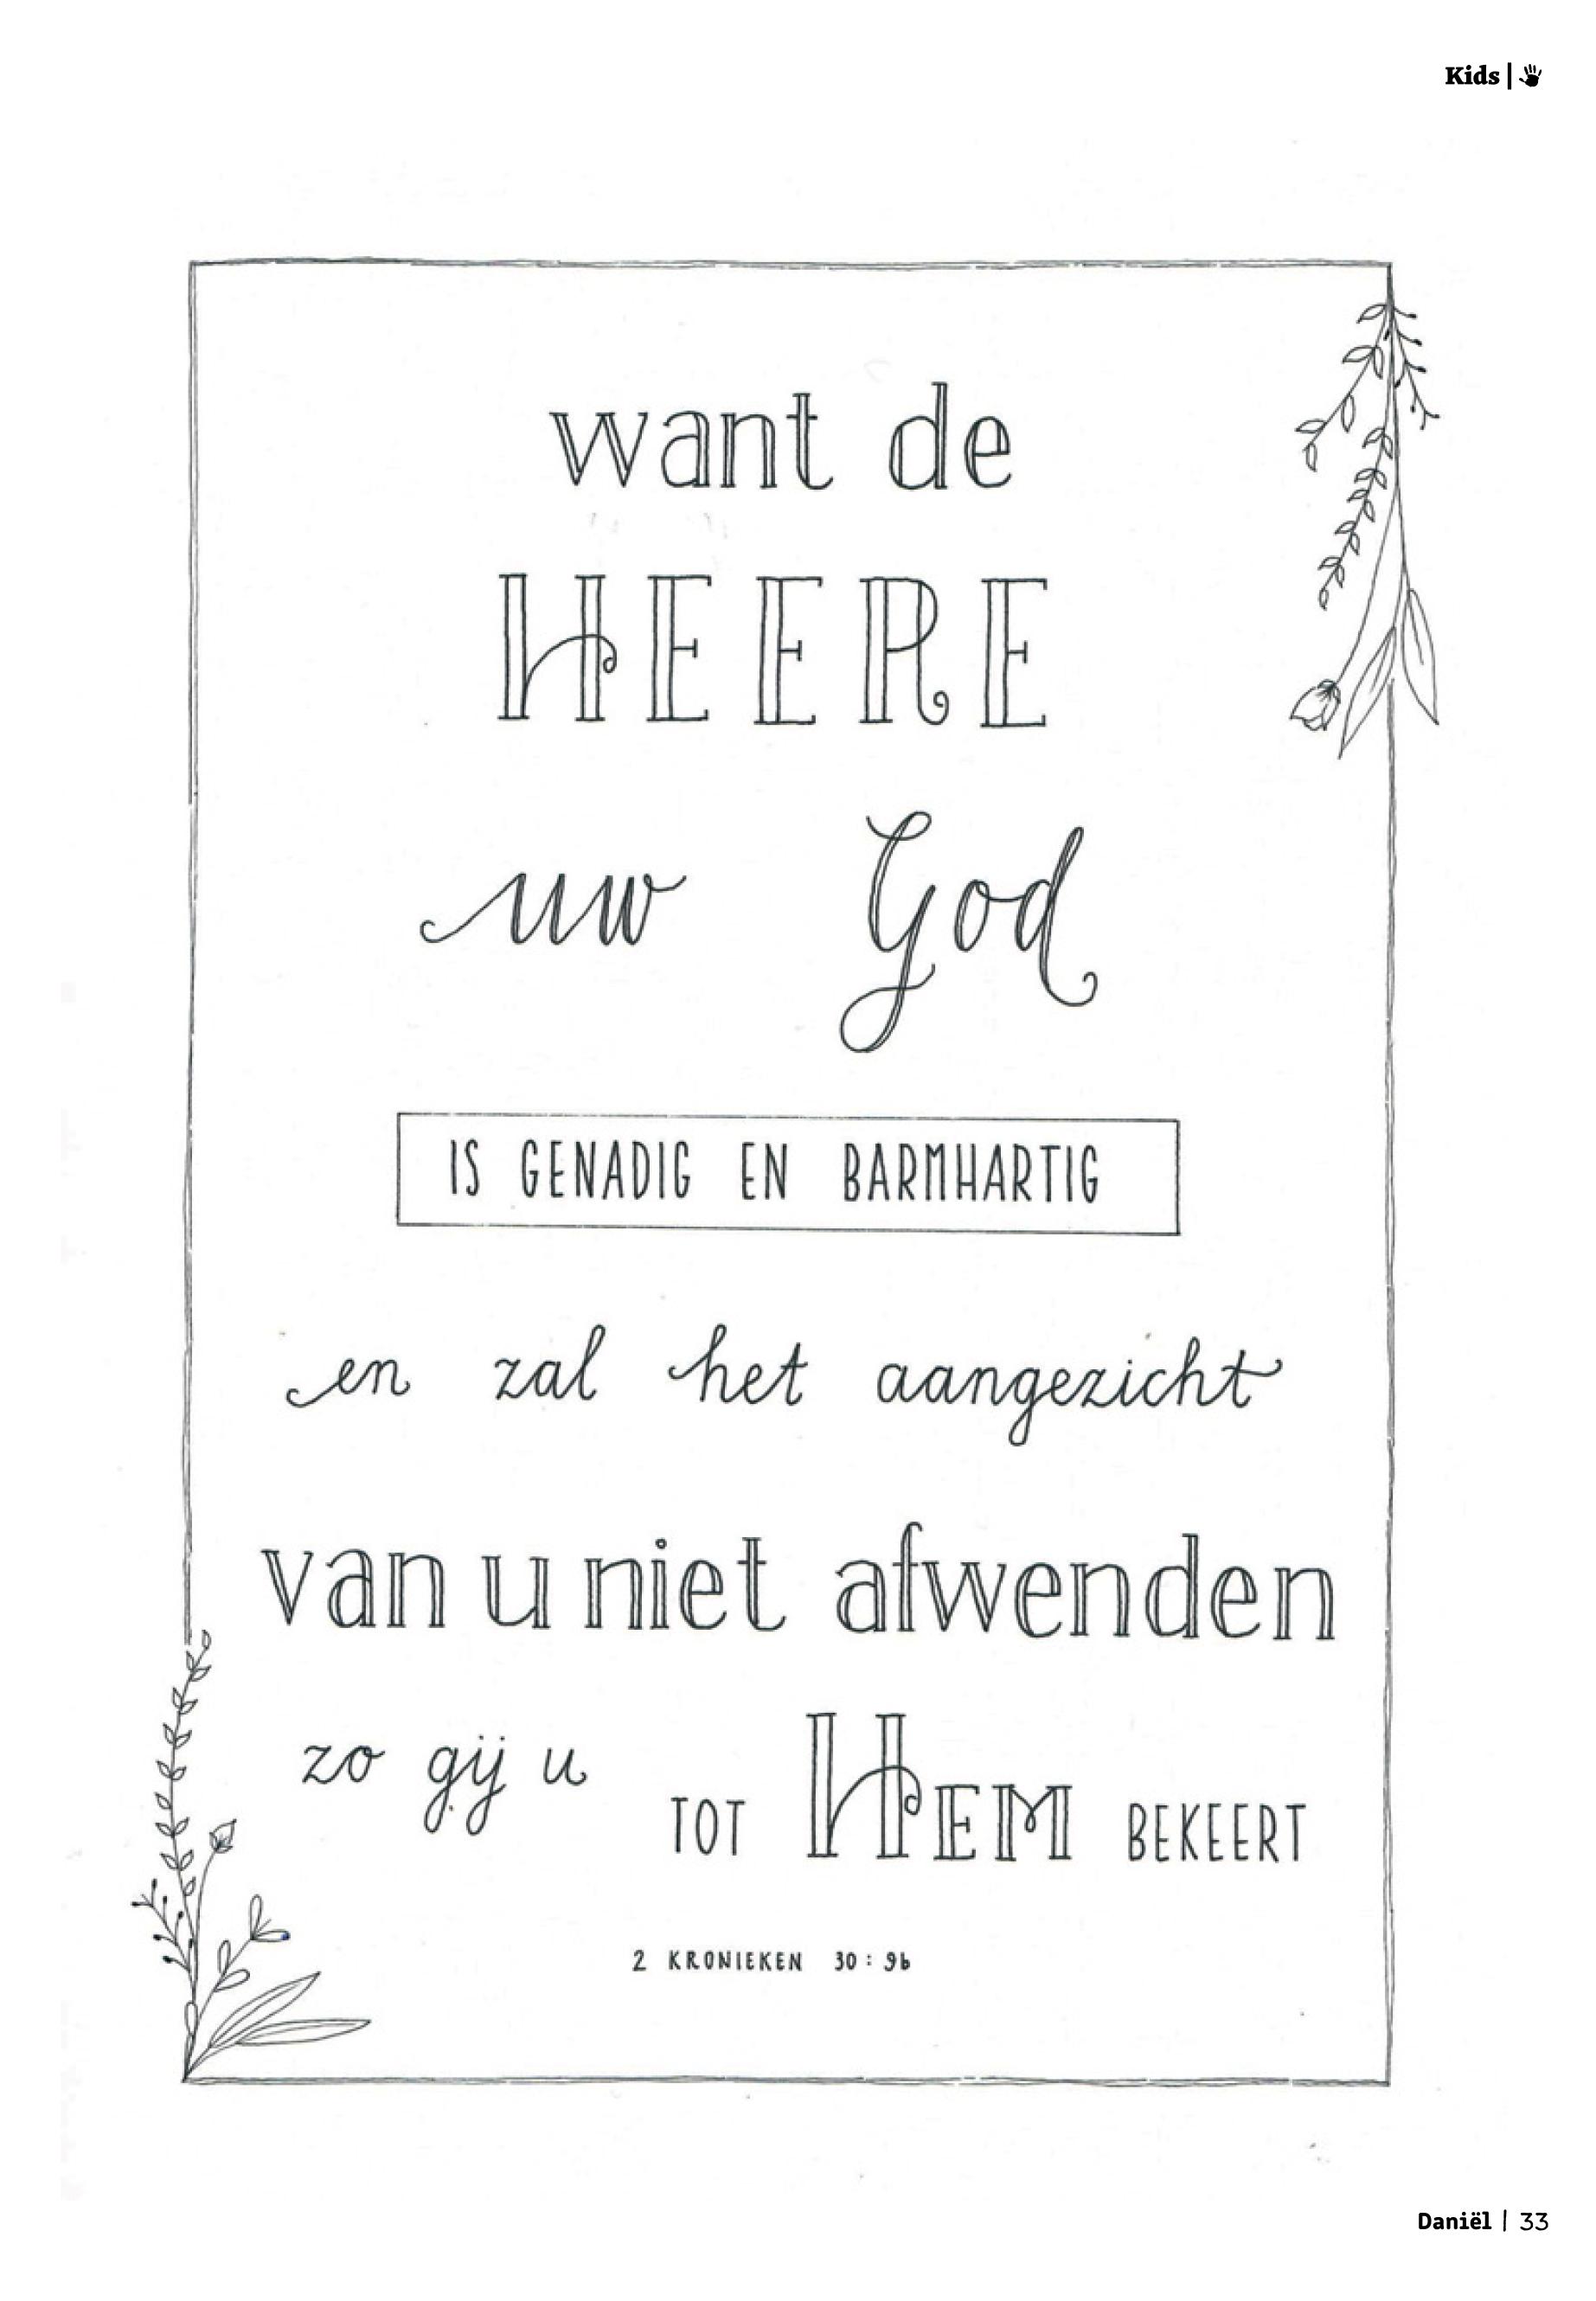 Kids |
want de
HEERE
uw God
IS GENADIG EN BARMHARTIG
en zal het aangezicht
van u niet afwenden
zo gij u TOT HEM BEKEERT
2 KRONIEKEN 30:9b
Daniël | 33